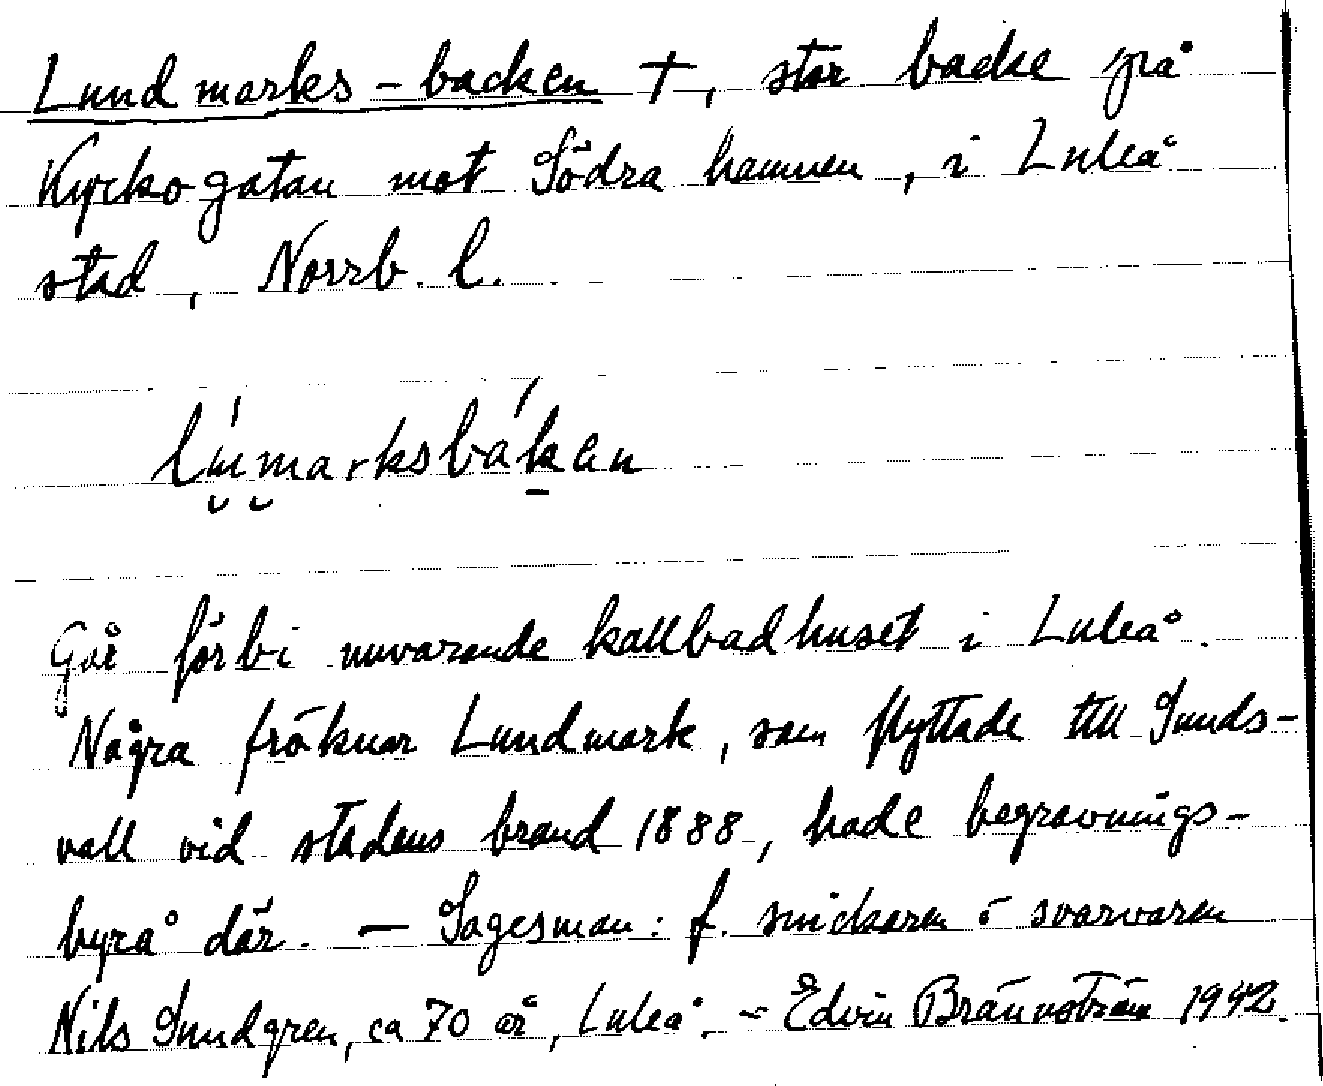 Lundmarks-backen †, stor backe på
Kyrkogatan mot Södra hamnen, i Luleå
stad, Norrb. l.
Går förbi nuvarande kallbadhuset i Luleå.
Några fröknar Lundmark, som flyttade till Sunds-
vall vid stadens brand 1888, hade begravnings-
byrå där. — Sagesman: f. snickaren o svarvaren
Nils Sundgren, ca 70 år, Luleå. – Edvin Brännström 1942.